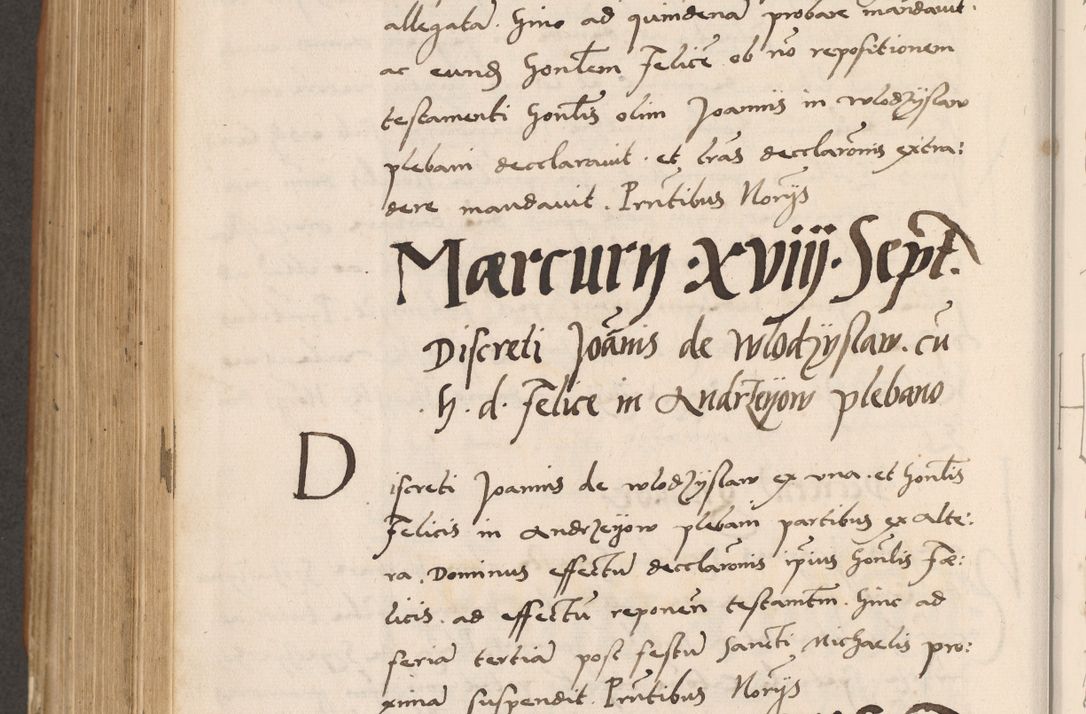 allegatā. hinc ad quindenā probare mandavit.
ac eundē honlem Felicē ob nō repositionem
testamenti honlis olim Joannis in Wlodzÿslaw
plebani decclaravit. et lrās decclarōnis extra:
dere mandavit. Prntibus Norÿs
Mercurÿ .xviij. Sept.
Discreti Joānis de Wlodzÿslaw. cū
. h. d. Felice in Andrzeÿow plebano
Discreti Joannis de Wlodzÿslaw ex vna. et honlis
Felicis in Andrzeÿow plebani partibus ex alte:
ra. Dominus effectū decclarōnis ipius honlis Fæ:
licis. ad effectū reponēn testamtm. hinc ad
feriā tertiā post festū Sancti Michaelis pro:
ximā suspendit. Prntibus Norÿs